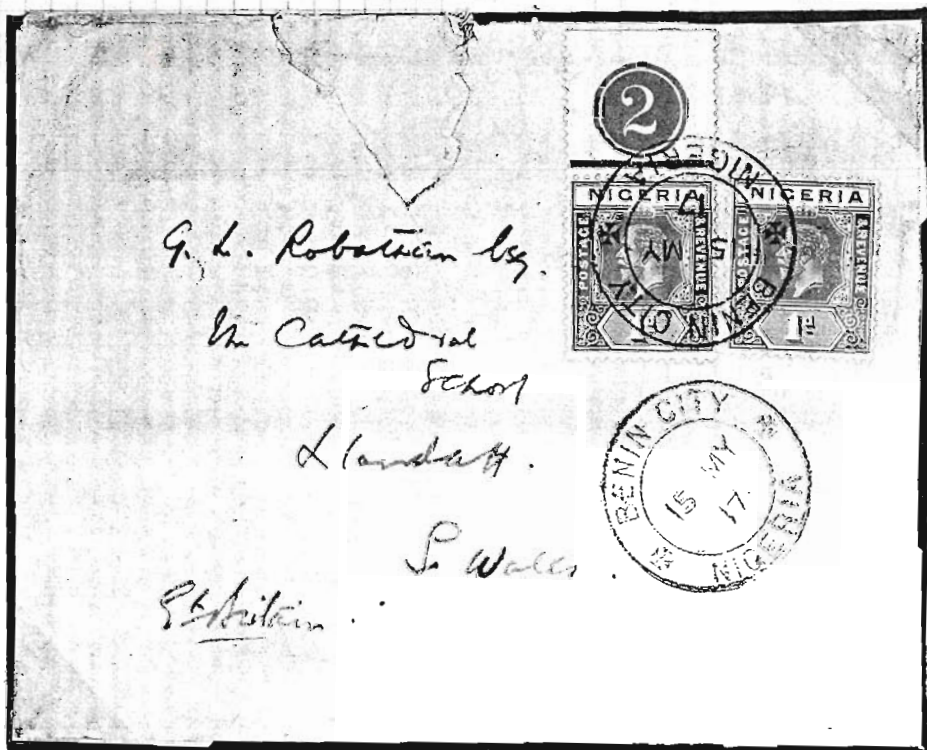 2
NIGERIA NIGERIA
POSTAGE & REVENUE POSTAGE & REVENUE
1d
BENIN CITY NIGERIA
15 MY
17
G. L. Robathan Esq.
The Cathedral
School
Llandaff.
S. Wales.
Gt Britain.
BENIN CITY
15 MY
17
NIGERIA